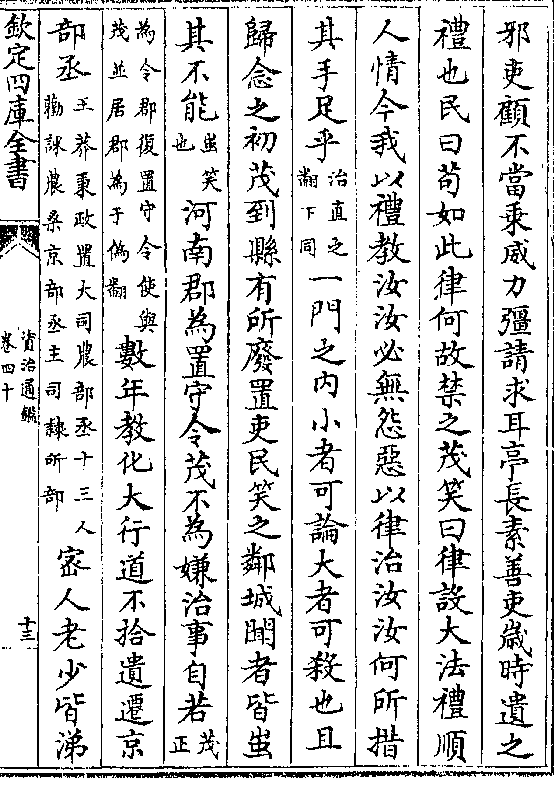 邪吏顧不當乘威力彊請求耳亭長素善吏歳時遺之
禮也民曰苟如此律何故禁之茂笑曰律設大法禮順
人情今我以禮教汝汝必無怨惡以律治汝汝何所措
其手足乎治直之翻下同一門之内小者可論大者可殺也且
歸念之初茂到縣有所廢置吏民笑之鄰城聞者皆蚩
其不能蚩笑也河南郡為置守令茂不為嫌治事自若茂正
為令郡復置守令使與茂並居郡為于偽翻數年教化大行道不拾遺遷京
部丞王莽秉政置大司農部丞十三人勸課農桑京部丞主司隸所部宻人老少皆涕
欽定四庫全書
資治通鑑
卷四十
十三